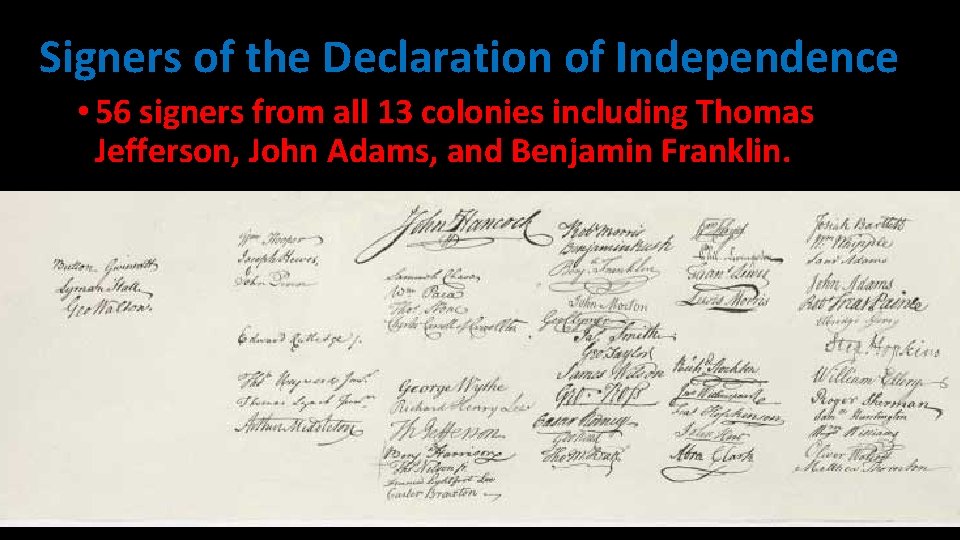 Signers of the Declaration of Independence
• 56 signers from all 13 colonies including Thomas
Jefferson, John Adams, and Benjamin Franklin.
Button Gwinnett
Lyman Hall
Geo Walton.
Wm Hooper
Joseph Hewes,
John Penn
Edward Rutledge /.
Thos Heyward Junr.
Thomas Lynch Junr.
Arthur Middleton
John Hancock
Samuel Chase
Wm Paca
Thos Stone
Charles Carroll of Carrollton
George Wythe
Richard Henry Lee
Th Jefferson
Benj Harrison
Thos Nelson jr.
Francis Lightfoot Lee
Carter Braxton
Robt Morris
Benjamin Rush
Benj Franklin
John Morton
Geo Clymer
Jas Smith
Geo Taylor
James Wilson
Geo. Ross
Caesar Rodney
Geo Read
Tho M:Kean
Wm Floyd
Phil. Livingston
Frans Lewis
Lewis Morris
Richd Stockton
Jno Witherspoon
Fras Hopkinson
John Hart
Abra Clark
Josiah Bartlett
Wm Whipple
Saml Adams
John Adams
Robt Treat Paine
Elbridge Gerry
Step Hopkins
William Ellery
Roger Sherman
Saml Huntington
Wm Williams
Oliver Wolcott
Matthew Thornton